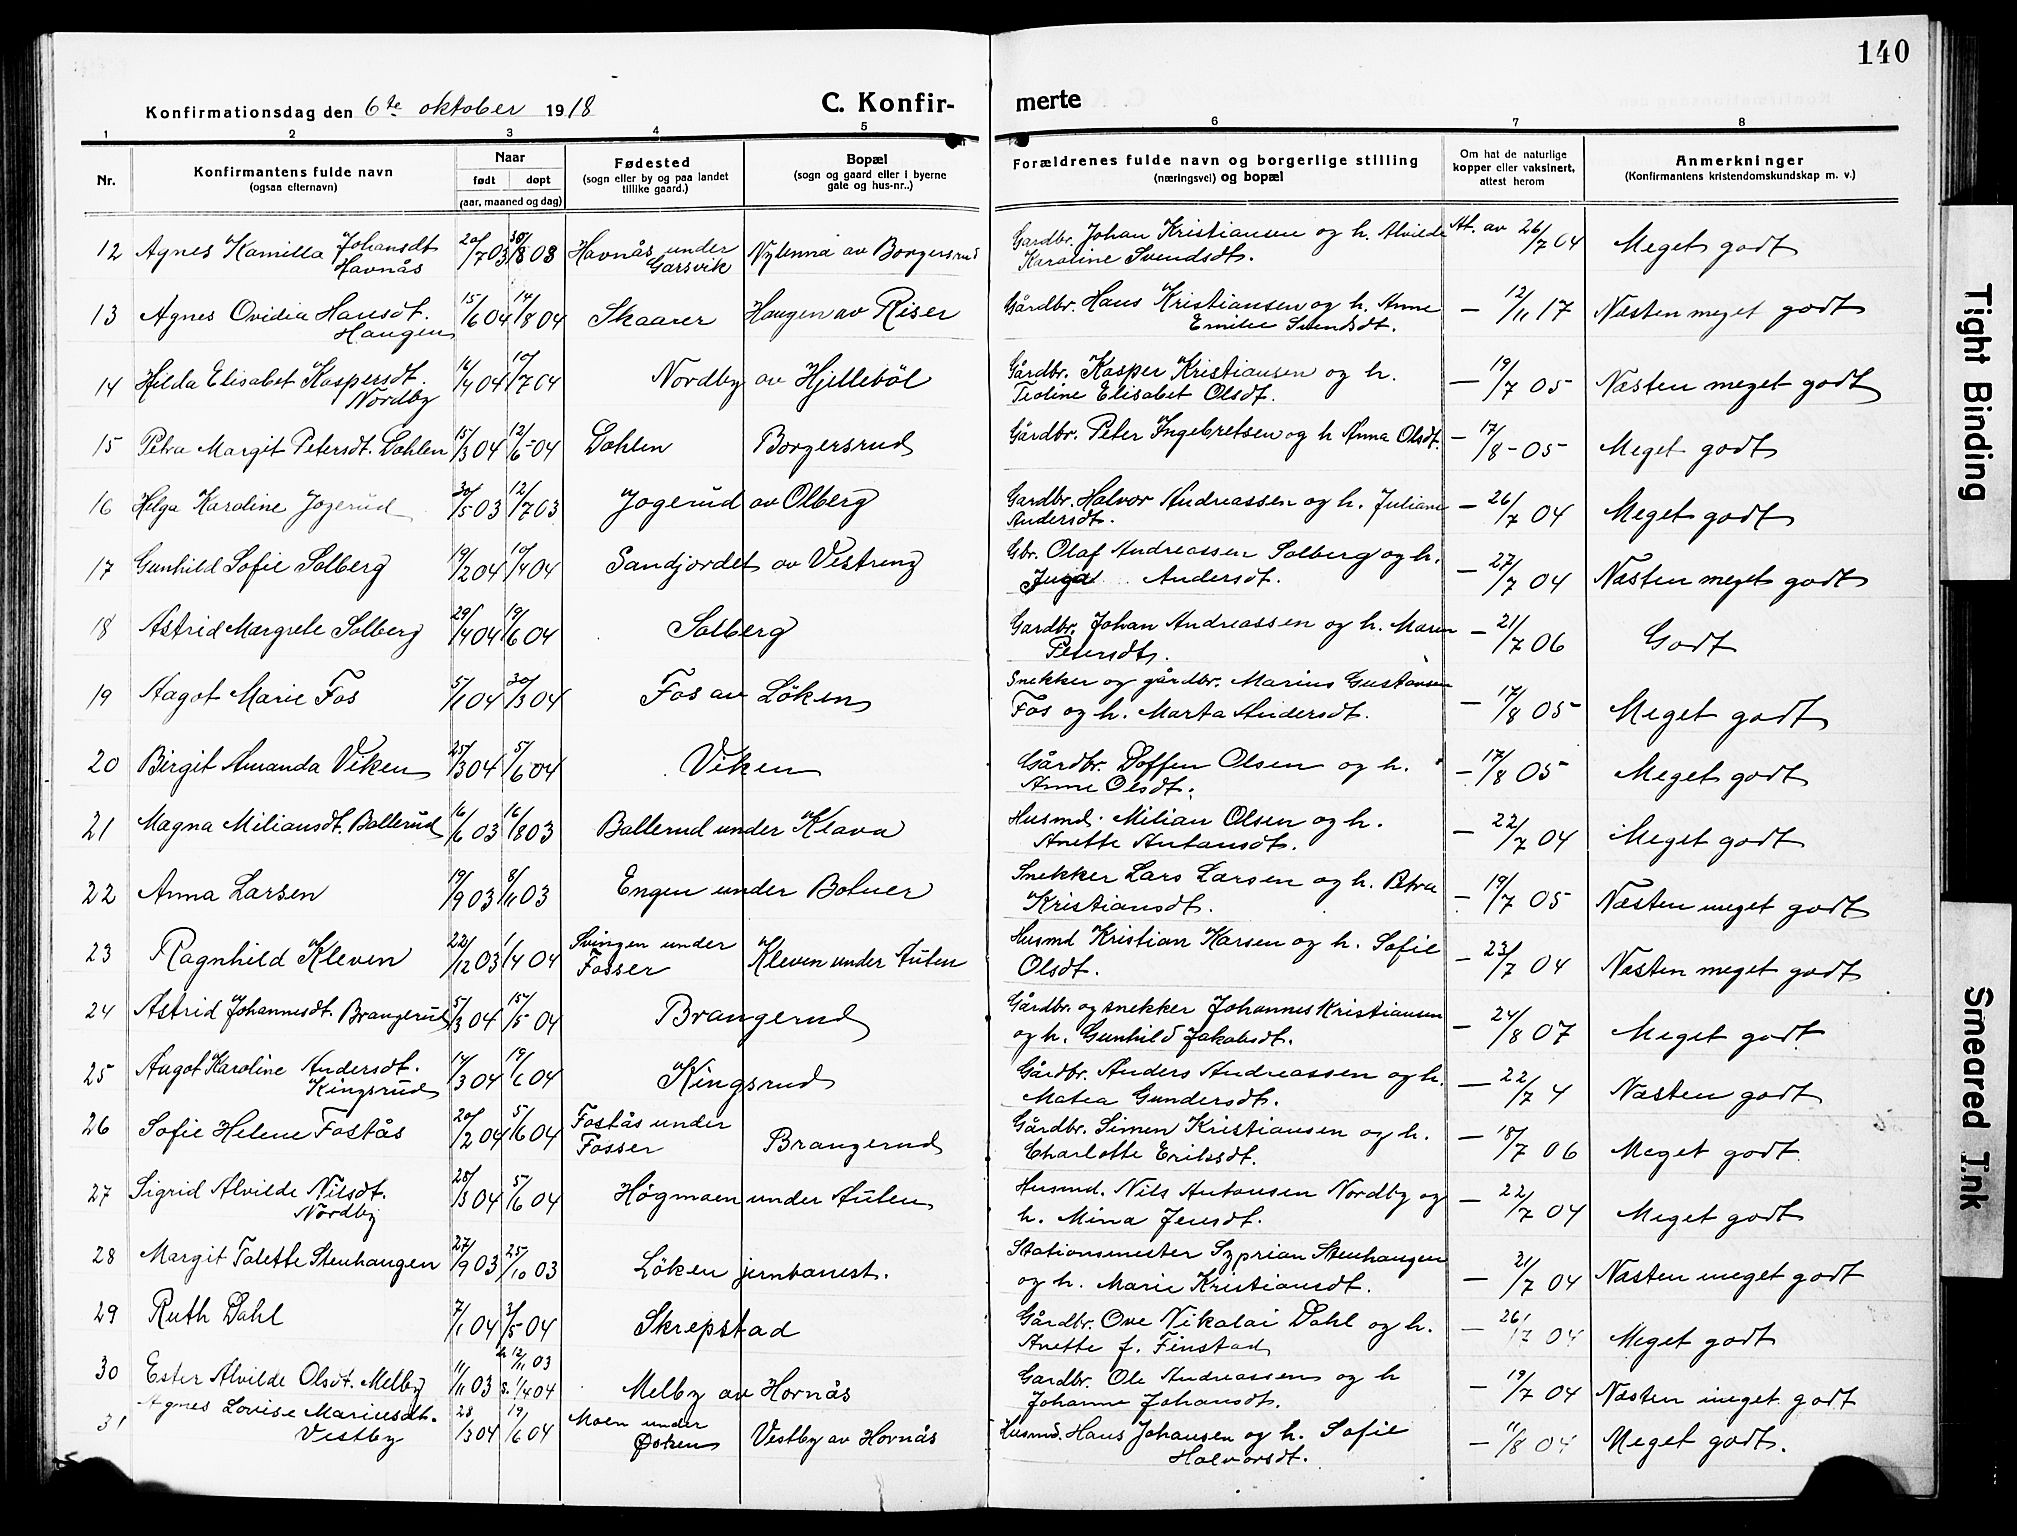 140
Konfirmationsdag den 6te oktober 1918
C. Konfir-
merte
1 2 3 4 5 6 7 8
Nr.
Konfirmantens fulde navn
(ogsaa efternavn)
Naar
født døpt
(aar, maaned og dag)
Fødested
(sogn eller by og paa landet
tillike gaard.)
Bopæl
(sogn og gaard eller i byerne
gate og hus-nr..)
Forældrenes fulde navn og borgerlige stilling
(næringsvei) og bopæl
Om hat de naturlige
kopper eller vaksinert,
attest herom
Anmerkninger
(Konfirmantens kristendomskundskap m. v.)
12 Agnes Kamilla Johansdt Havnås 20/7 03 30/8 03 Havnås under Garsvik Nylenna av Borgersrud Gardbr. Johan Kristiansen og h. Alvilde Karoline Svendsdt. At. av 26/7 04 Meget godt
13 Agnes Ovidia Hansdt. Haugen 15/6 04 14/8 04 Skaarer Haugen av Riser Gårdbr. Hans Kristiansen og h. Anne Emilie Svendsdt. — 12/11 17 Næsten meget godt
14 Hilda Elisabet Kaspersdt. Nordby 16/4 04 10/7 04 Nordby av Hjellebøl Gårdbr. Kasper Kristiansen og h. Teoline Elisabet Olsdt. — 19/7 05 Næsten meget godt
15 Petra Margit Petersdt. Dahlen 15/3 04 12/6 04 Dahlen Borgersrud Gårdbr. Peter Ingebretsen og h Anna Olsdt. — 17/8 05 Meget godt
16 Helga Karoline Jogerud 30/5 03 12/7 03 Jogerud av Olberg Gardbr. Halvor Andreassen og h. Juliane Andersdt. — 26/7 04 Meget godt
17 Gunhild Sofie Solberg 19/2 04 10/4 04 Sandjordet av Vestreng Gbr. Olaf Andreassen Solberg og h. Inga Andersdt. — 27/7 04 Næsten meget godt
18 Astrid Margrete Solberg 29/4 04 19/6 04 Solberg Gardbr. Johan Andreassen og h. Maren Petersdt. — 21/7 06 Godt
19 Aagot Marie Fos 5/1 04 30/3 04 Fos av Løken Snekker og gårdbr. Marius Gustavsen Fos og h. Marta Andersdt. — 17/8 05 Meget godt
20 Birgit Amanda Viken 25/3 04 5/6 04 Viken Gårdbr. Doffen Olsen og h. Anne Olsdt. — 17/8 05 Meget godt
21 Magna Miliansdt. Ballerud 16/6 03 16/8 03 Ballerud under Klava Husmd. Milian Olsen og h. Anette Antonsdt. — 22/7 04 Meget godt
22 Anna Larsen 19/9 03 8/11 03 Engen under Bolner Snekker Lars Larsen og h. Petra Kristiansdt. — 19/7 05 Næsten meget godt
23 Ragnhild Kleven 22/12 03 1/4 04 Svingen under Fosser Kleven under Auten Husmd Kristian Karsen og h. Sofie Olsdt. — 23/7 04 Næsten meget godt
24 Astrid Johannesdt. Brangerud 5/3 04 15/5 04 Brangerud Gårdbr. og snekker Johannes Kristiansen og h. Gunhild Jakobsdt. — 24/8 07 Meget godt
25 Aagot Karoline Andersdt. Kingsrud 17/3 04 19/6 04 Kingsrud Gårdbr. Anders Andreassen og h. Matea Gundersdt. — 22/7 4 Næsten godt
26 Sofie Helene Fostås 20/2 04 5/6 04 Fostås under Fosser Brangerud Gårdbr. Simen Kristiansen og h. Charlotte Eriksdt. — 18/7 06 Meget godt
27 Sigrid Alvilde Nilsdt. Nordby 25/3 04 5/6 04 Høgmoen under Auten Husmd. Nils Antonsen Nordby og h. Mina Jensdt. — 22/7 04 Meget godt
28 Margit Talette Stenhaugen 27/9 03 25/10 03 Løken jernbanest. Stationsmester Syprian Stenhaugen og h. Marie Kristiansdt. — 21/7 04 Næsten meget godt
29 Ruth Dahl 7/1 04 3/5 04 Skrepstad Gårdbr. Ove Nikolai Dahl og h. Anette f. Finstad — 26/7 04 Meget godt
30 Ester Alvilde Olsdt. Melby 11/11 03 h. 12/11 03 s. 1/4 04 Melby av Hornås Gardbr. Ole Andreassen og h Johanne Johansdt. — 19/7 04 Næsten meget godt
31 Agnes Lovise Mariusdt. Vestby 28/3 04 19/6 04 Moen under Østzen Vestby av Hornås Husmd. Hans Johansen og h. Sofie Halvorsdt. — 11/8 04 Meget godt.
Tight Binding
Smeared Ink